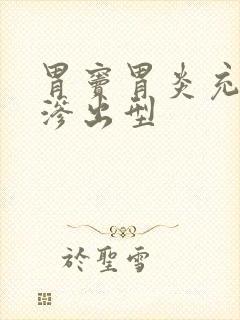 胃窦胃炎充
滲出型
於聖雪